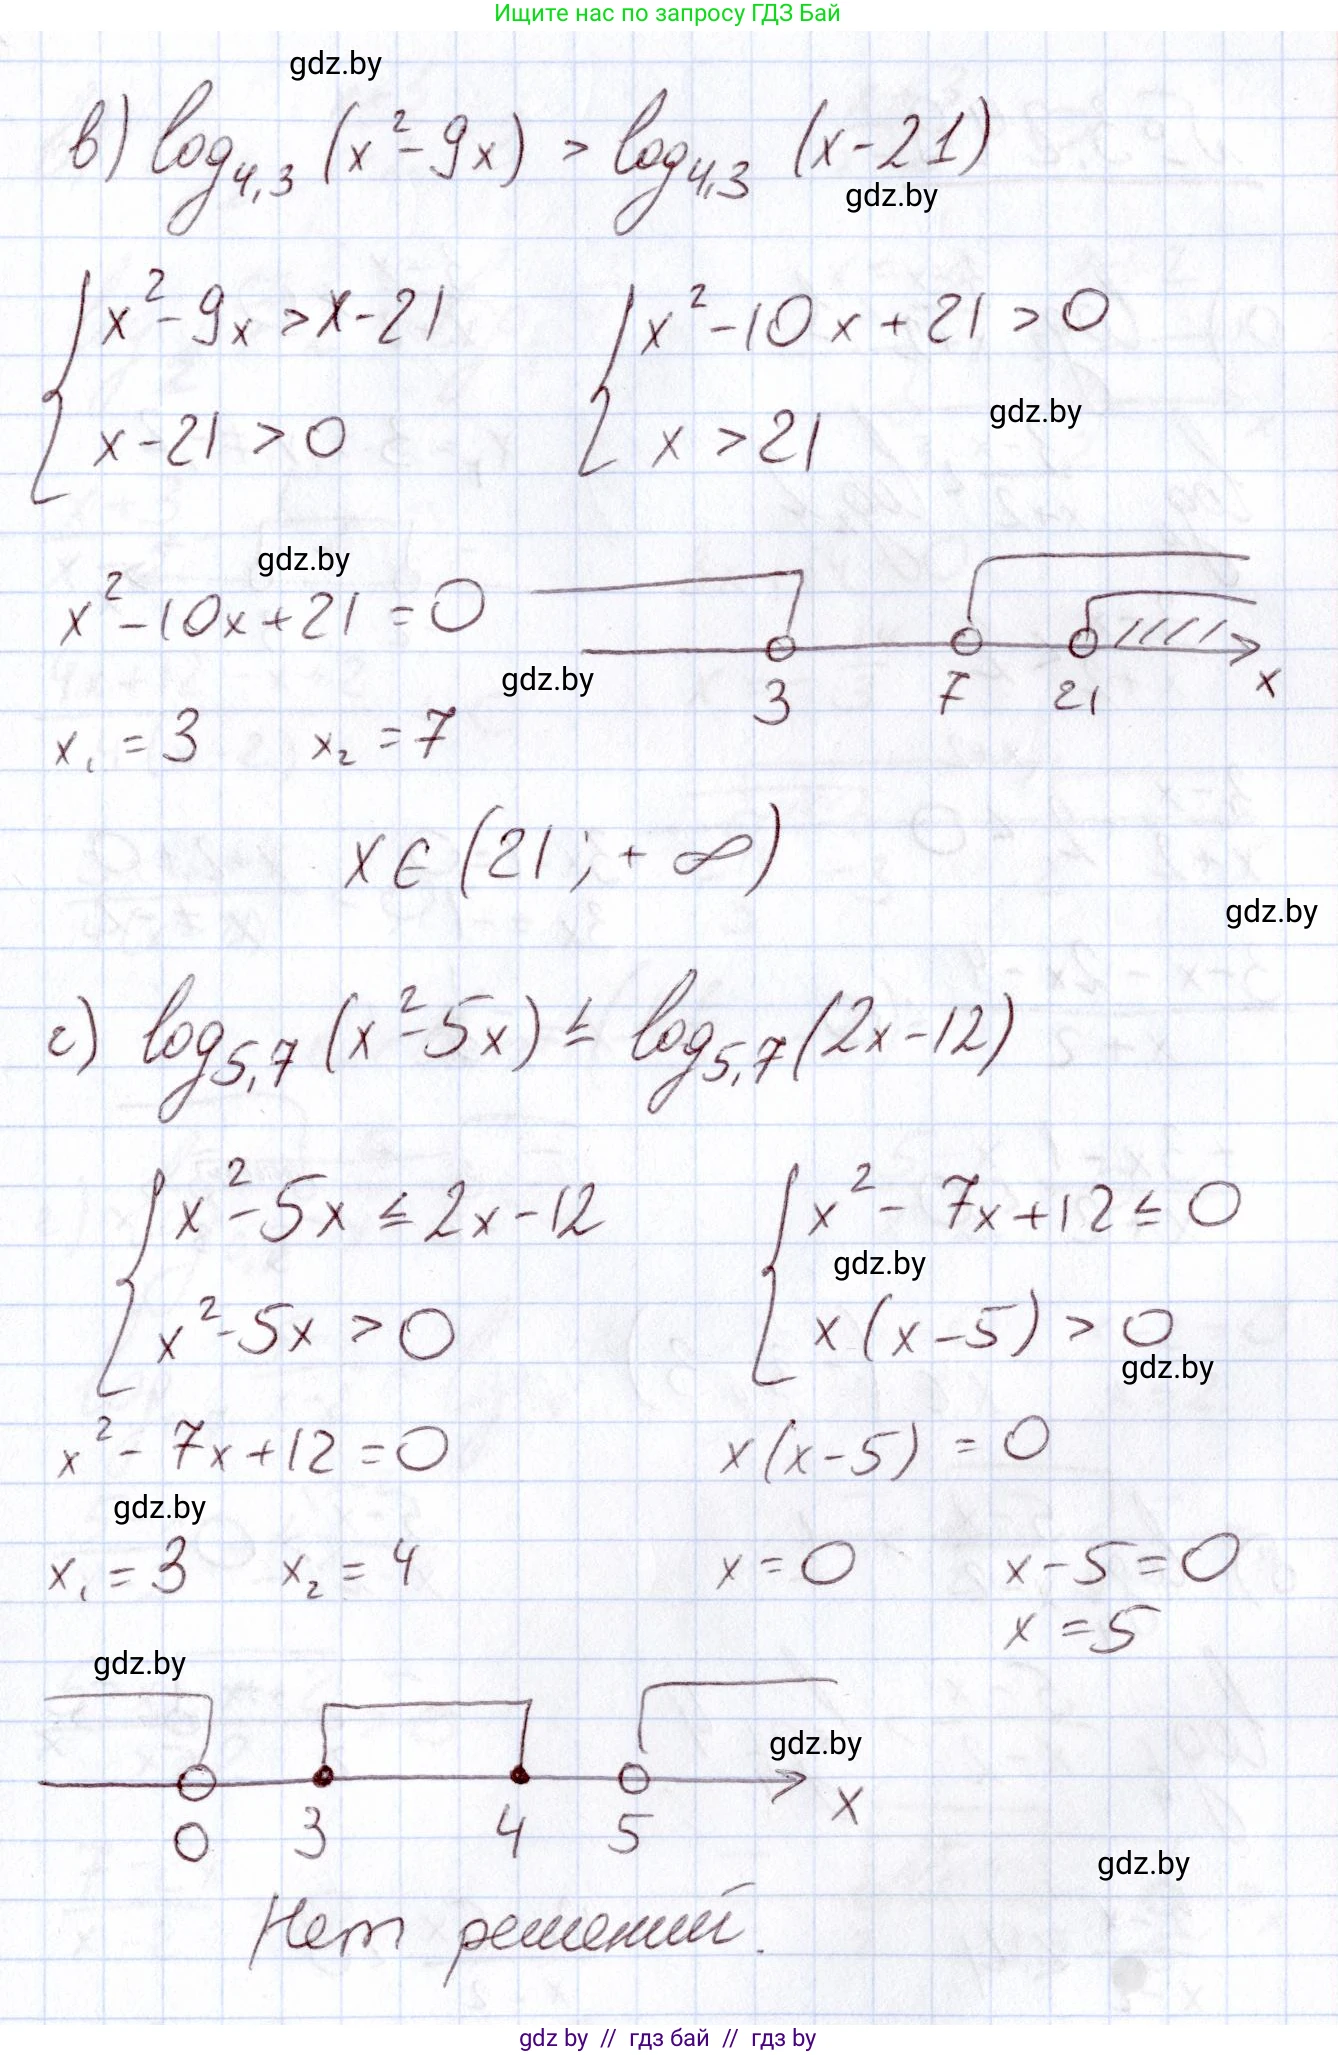 Ищите нас по запросу ГДЗ Бай
gdz.by
в) log₄,₃ (x² - 9x) > log₄,₃ (x - 21)
gdz.by
{ x² - 9x > x - 21 { x² - 10x + 21 > 0
gdz.by
x - 21 > 0 x > 21
gdz.by
x² - 10x + 21 = 0
gdz.by
3 7 21 x
x₁ = 3 x₂ = 7
x ∈ (21 ; + ∞)
gdz.by
г) log₅,₇ (x² - 5x) ≤ log₅,₇ (2x - 12)
{ x² - 5x ≤ 2x - 12 { x² - 7x + 12 ≤ 0
gdz.by
x² - 5x > 0 x (x - 5) > 0
gdz.by
x² - 7x + 12 = 0 x (x - 5) = 0
gdz.by
x₁ = 3 x₂ = 4 x = 0 x - 5 = 0
x = 5
gdz.by
gdz.by
0 3 4 5 x
gdz.by
Нет решений.
gdz by // гдз бай // гдз by